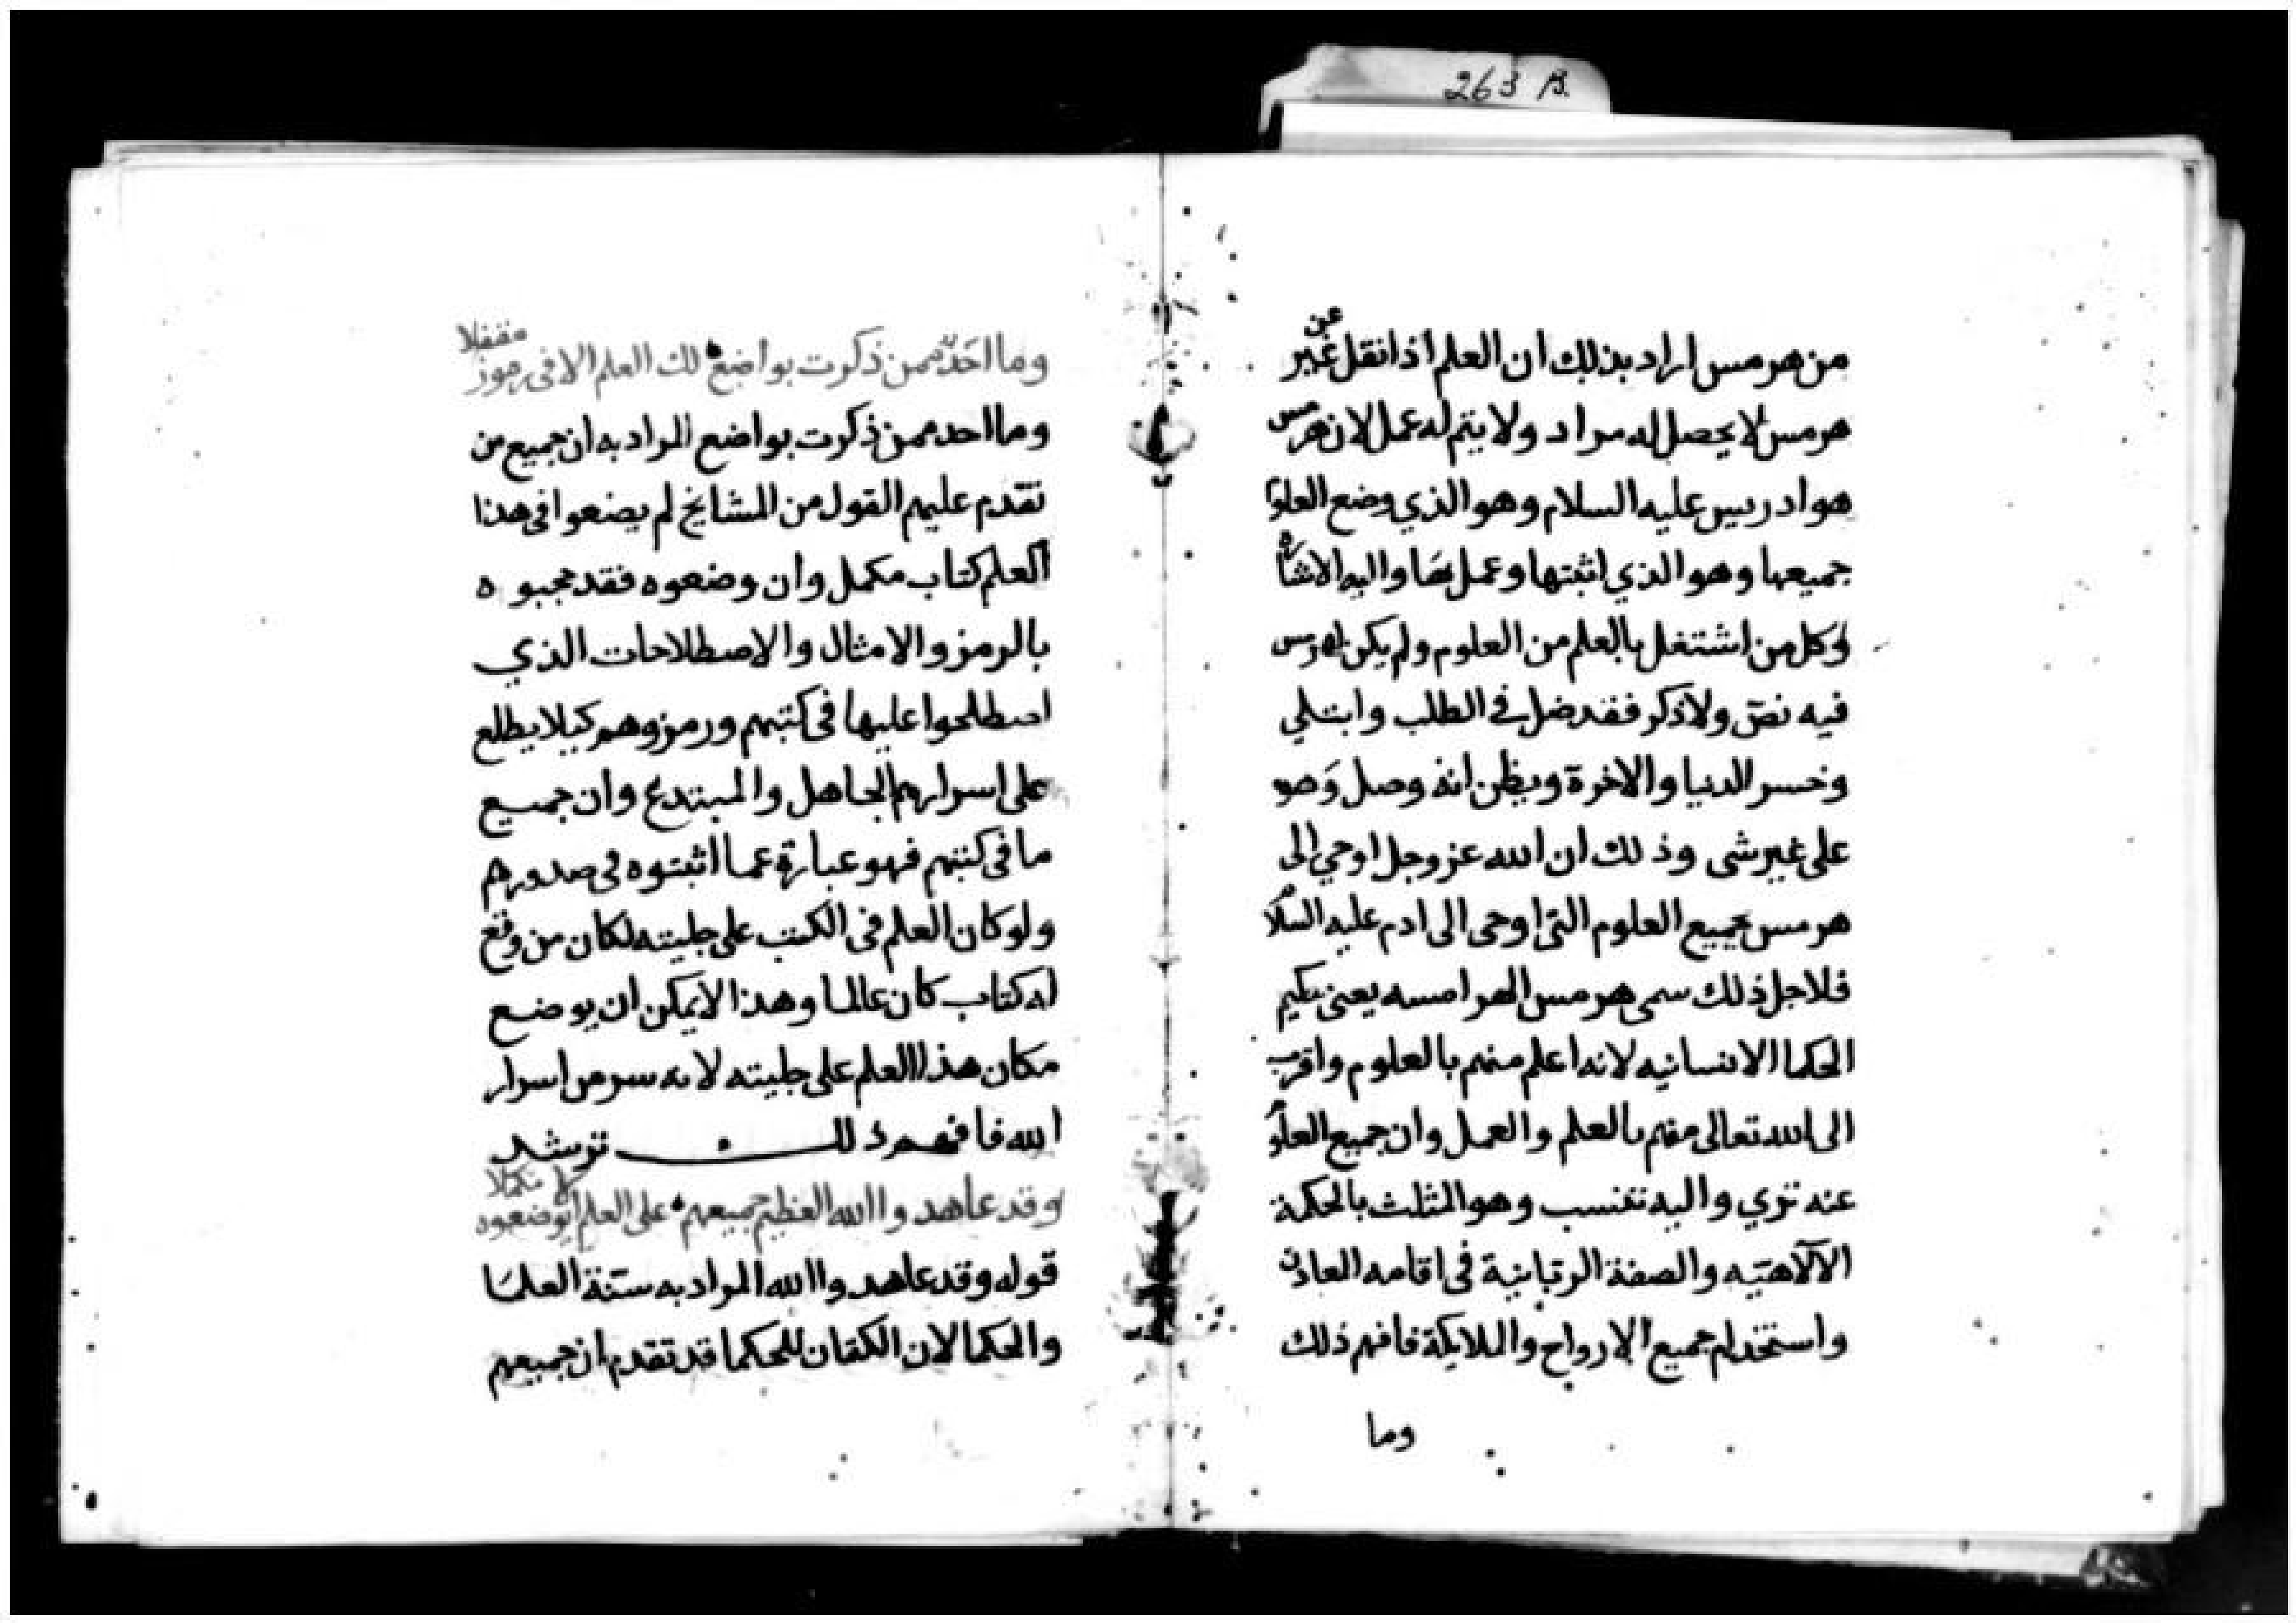 263 B.
من هرمس اراد بذلك ان العلم اذا نقل عن غير
هرمس لا يحصل له مراد ولا يتم له عمل لان هرمس
هو ادريس عليه السلام وهو الذي وضع العلوم
جميعها وهو الذي اثبتها وعمل بها واليه الاشاره
وكل من اشتغل بالعلم من العلوم ولم يكن لهرمس
فيه نص ولا ذكر فقد ضل في الطلب وابتلي
وخسر الدنيا والاخرة ويظن انه وصل وهو
على غير شى وذلك ان الله عز وجل اوحي الى
هرمس بجميع العلوم التي اوحى الى ادم عليه السلام
فلاجل ذلك سمى هرمس الهرامسه يعنى حكيم
الحكما الانسانيه لانه اعلم منهم بالعلوم واقرب
الى الله تعالى منهم بالعلم والعمل وان جميع العلوم
عنه تروي واليه تنتسب وهو المثلث بالحكمة
الآلاهيه والصفة الربانية فى اقامه
واستخدام جميع الارواح والملايكة فافهم ذلك
وما
وما احد ممن ذكرت بواضع لك العلم الا فى رموز مقفلا
وما احد ممن ذكرت بواضع المراد به ان جميع من
تقدم عليهم القول من المشايخ لم يضعوا فى هذا
العلم كتاب مكمل وان وضعوه فقد حجبوه
بالرمز والامثال والاصطلاحات الذي
اصطلحوا عليها فى كتبهم ورمزوهم كيلا يطلع
على اسرارهم الجاهل والمبتدع وان جميع
ما فى كتبهم فهو عبارة عما اثبتوه فى صدورهم
ولو كان العلم فى الكتب على جليته لكان من وقع
له كتاب كان عالما وهذا لا يمكن ان يوضع
مكان هذا العلم على جليته لانه سر من اسرار
الله فافهم ذلك ترشد
وقد عاهدوا الله العظيم جميعهم على العلم ان يوضعوه
قوله وقد عاهدوا الله المراد به سنة العلما
والحكما لان الكتمان للحكما قد تقدم ان جميعهم